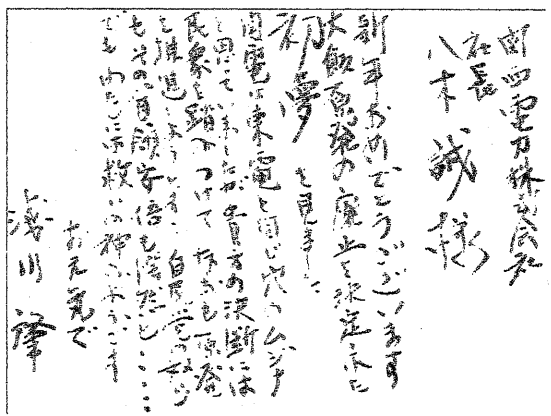 関西電力株式会社
社長
八木 誠 様
新年おめでとうございます
大飯原発の廃止を決定った
初夢 を見ました
関電は東電と同じ穴のムジナ
と思っていましたが貴方の決断には
民衆を踏みつけて なおも原発
を推進しようとする 自民党の
もその首領安倍も
でもわたしには救いの神
お元気で
浅川 肇